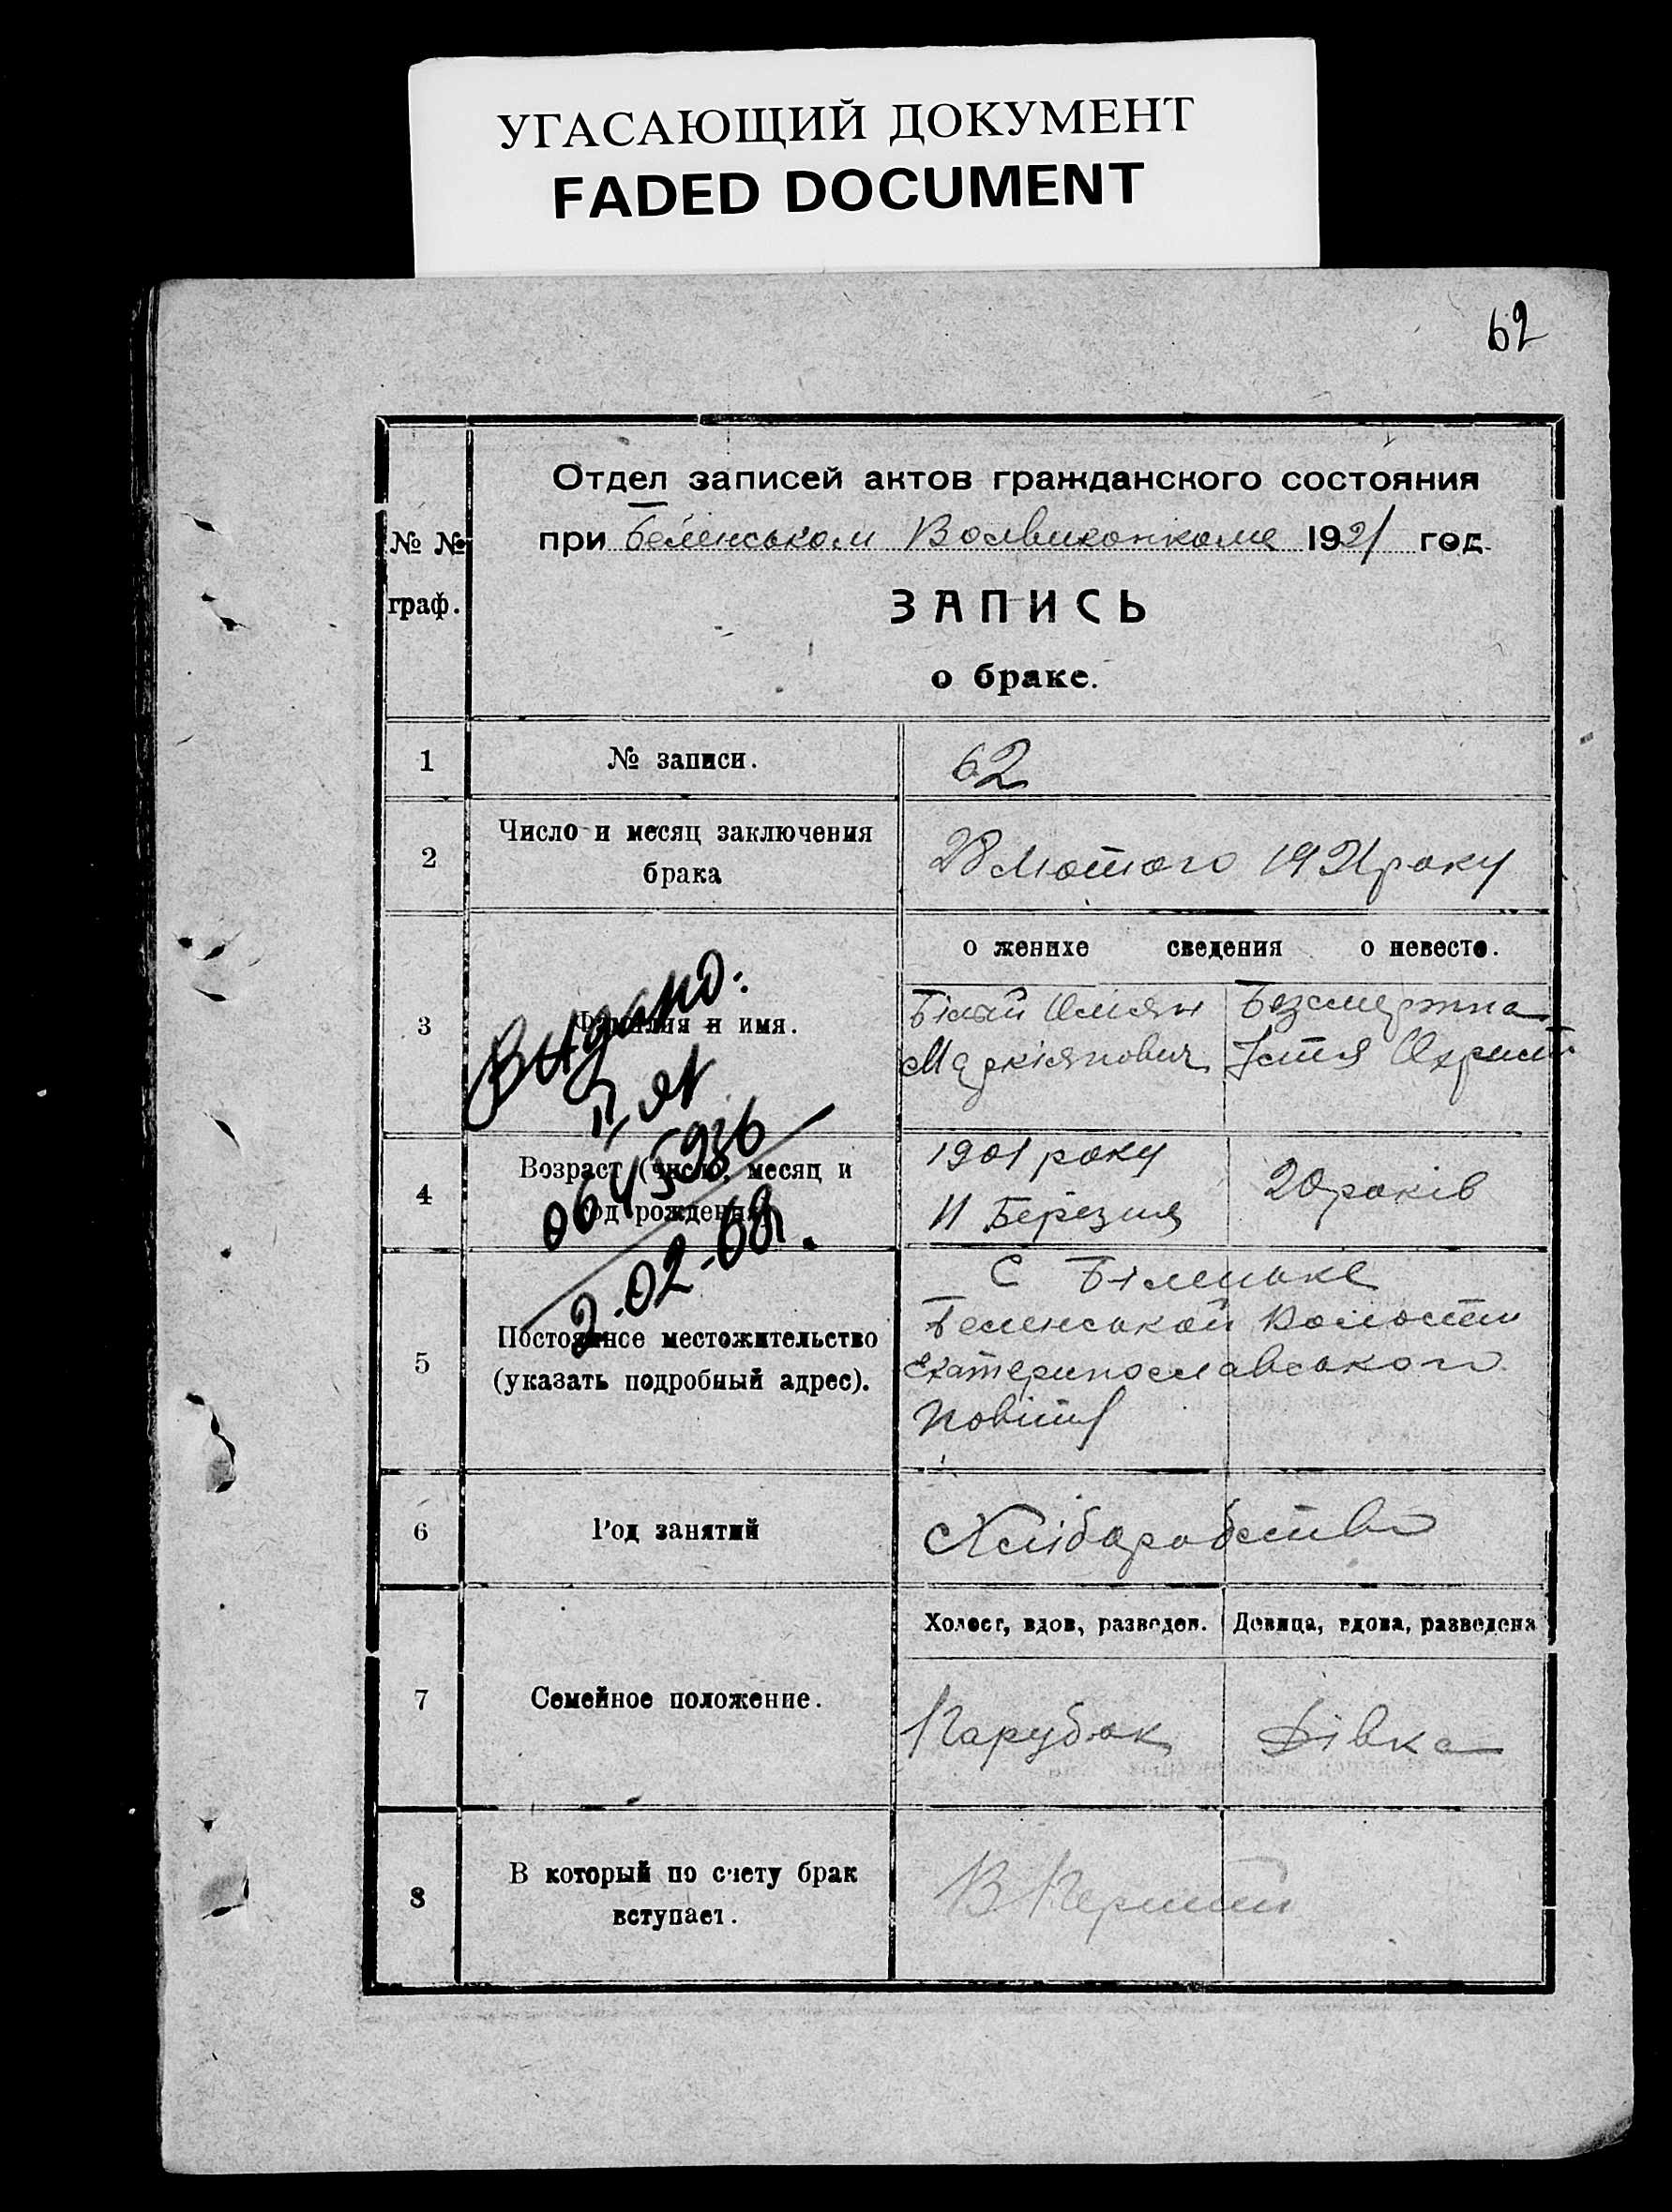 УГАСАЮЩИЙ ДОКУМЕНТ
FADED DOCUMENT
62
№ №
граф.
Отдел записей актов гражданского состояния
при Беленськом Волвиконкоме 1921 год
ЗАПИСЬ
о браке.
1
№ записи.
62
2
Число и месяц заключения
брака
28 Лютого 1921 року
о женихе сведения о невесте.
3
Фамилия и имя.
Білай Омелян
Маркіянович
Безсмертна
Устя
Видано:
4
Возраст (число, месяц и
год рождения)
1901 року
11 Березня
20 років
2.02.68г.
5
Постоянное местожительство
(указать подробный адрес).
С Біленьке
Беленськой Волости
Екатеринославського
Повіту
6
Род занятий
Хліборобство
7
Семейное положение.
Холост, вдов, разведен.
Девица, вдова, разведена
Парубок
Дівка
8
В который по счету брак
вступает.
В Перший